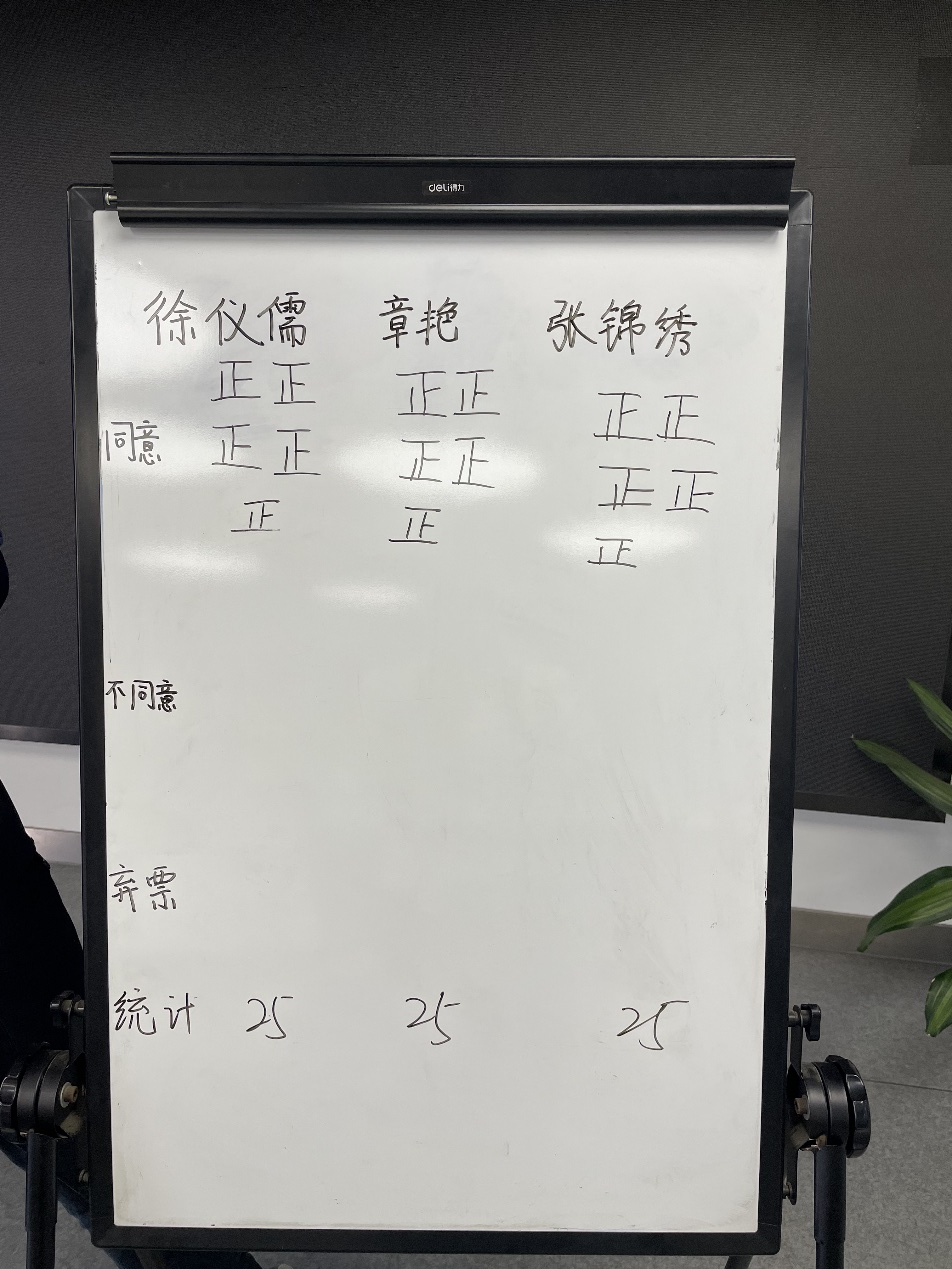 deli得力
徐仪儒 章艳 张锦绣
同意
正正 正正 正正
正正 正正 正正
正 正 正
不同意
弃票
统计 25 25 25